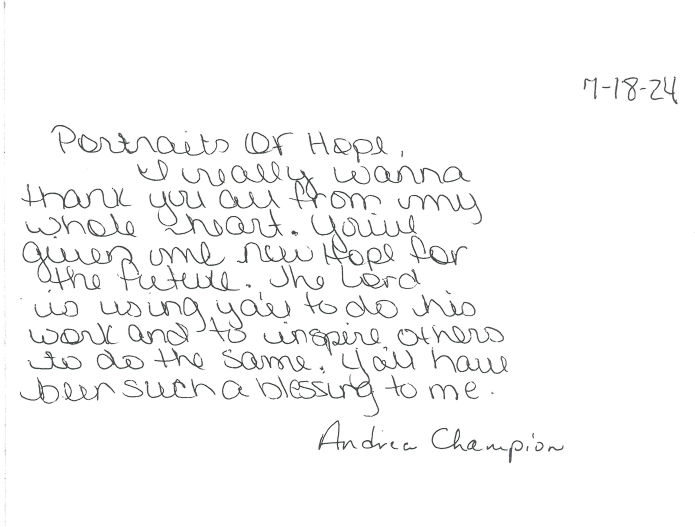 7-18-24
Portraits Of Hope,
I really wanna
thank you all from my
whole heart. You've
given me new Hope for
the future. The Lord
is using ya'll to do his
work and to inspire others
to do the same. Ya'll have
been such a blessing to me.
Andrea Champion